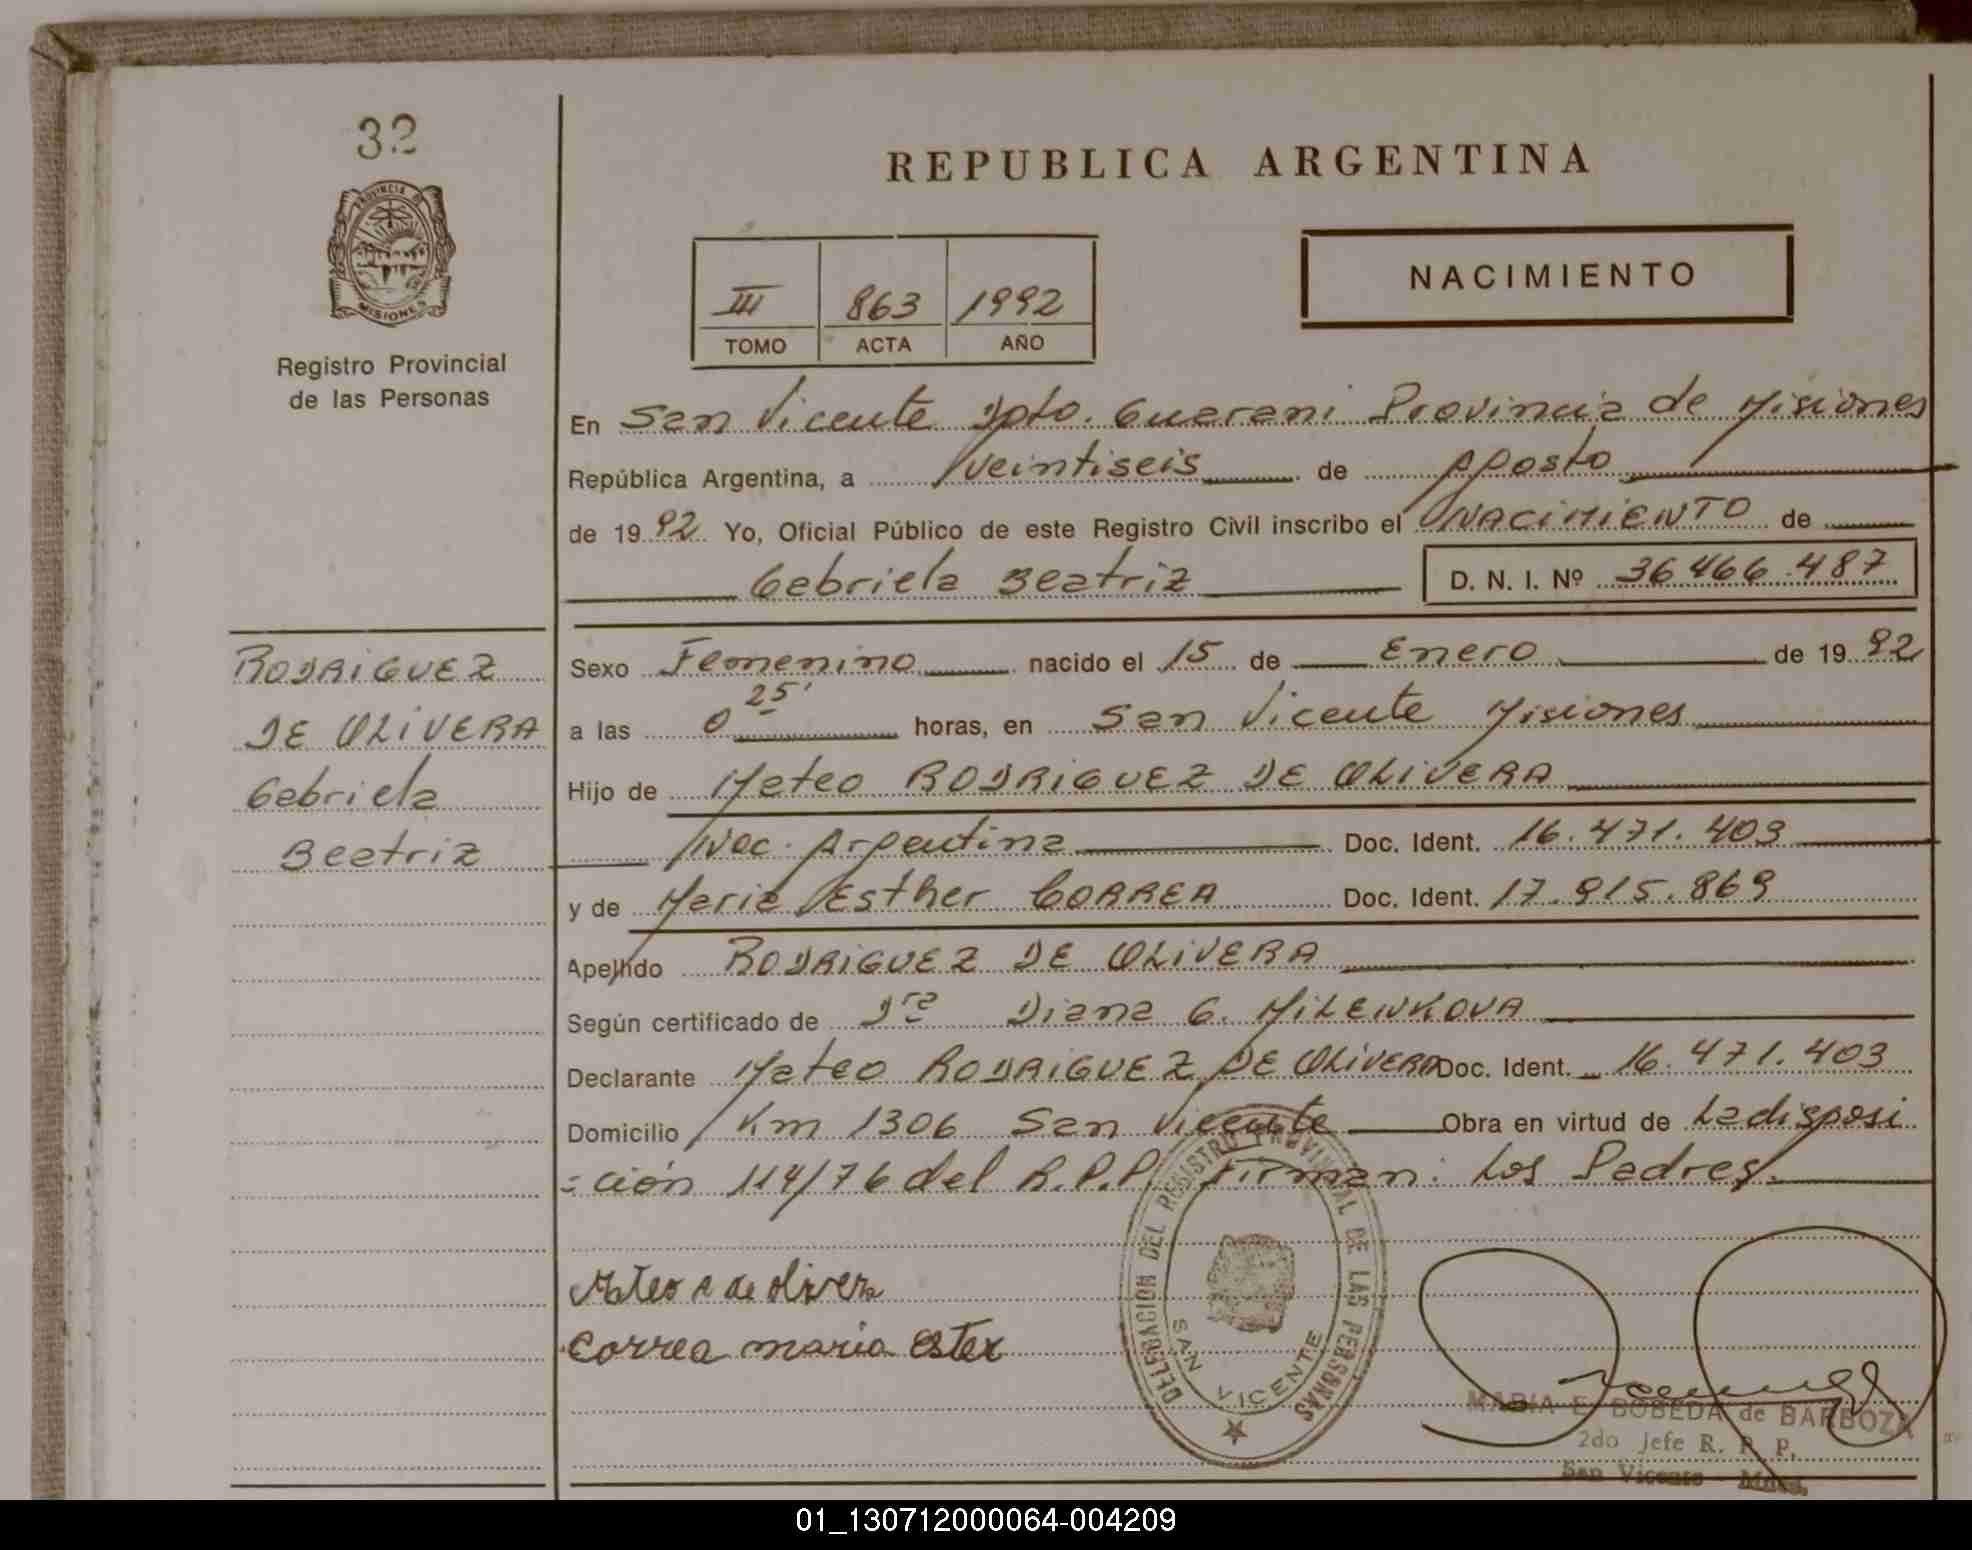 32
PROVINCIA DE
MISIONES
Registro Provincial
de las Personas
REPUBLICA ARGENTINA
NACIMIENTO
III 863 1992
TOMO ACTA AÑO
En San Vicente Dpto. Guarani Provincia de Misiones
República Argentina, a veintiseis de Agosto
de 1992 Yo, Oficial Público de este Registro Civil inscribo el NACIMIENTO de
Gabriela Beatriz D. N. I. Nº 36.466.487
RODRIGUEZ
DE OLIVERA
Gabriela
Beatriz
Sexo Femenino nacido el 15 de Enero de 1992
a las 0 25' horas, en San Vicente Misiones
Hijo de Mateo RODRIGUEZ DE OLIVERA
Nac. Argentina Doc. Ident. 16.471.403
y de Maria Esther CORREA Doc. Ident. 17.915.869
Apellido RODRIGUEZ DE OLIVERA
Según certificado de Dra Diana G. MILENKOVA
Declarante Mateo RODRIGUEZ DE OLIVERA Doc. Ident. 16.471.403
Domicilio Km 1306 San Vicente Obra en virtud de La disposi
=ción 114/76 del R.P.P. Firman: Los Padres.
Mateo R de olivera
Correa maria Ester
DELEGACION DEL REGISTRO PROVINCIAL DE LAS PERSONAS
SAN VICENTE
MARIA E. BOBEDA de BARBOZA
2do Jefe R. P. P.
San Vicente - Mnes.
01_130712000064-004209